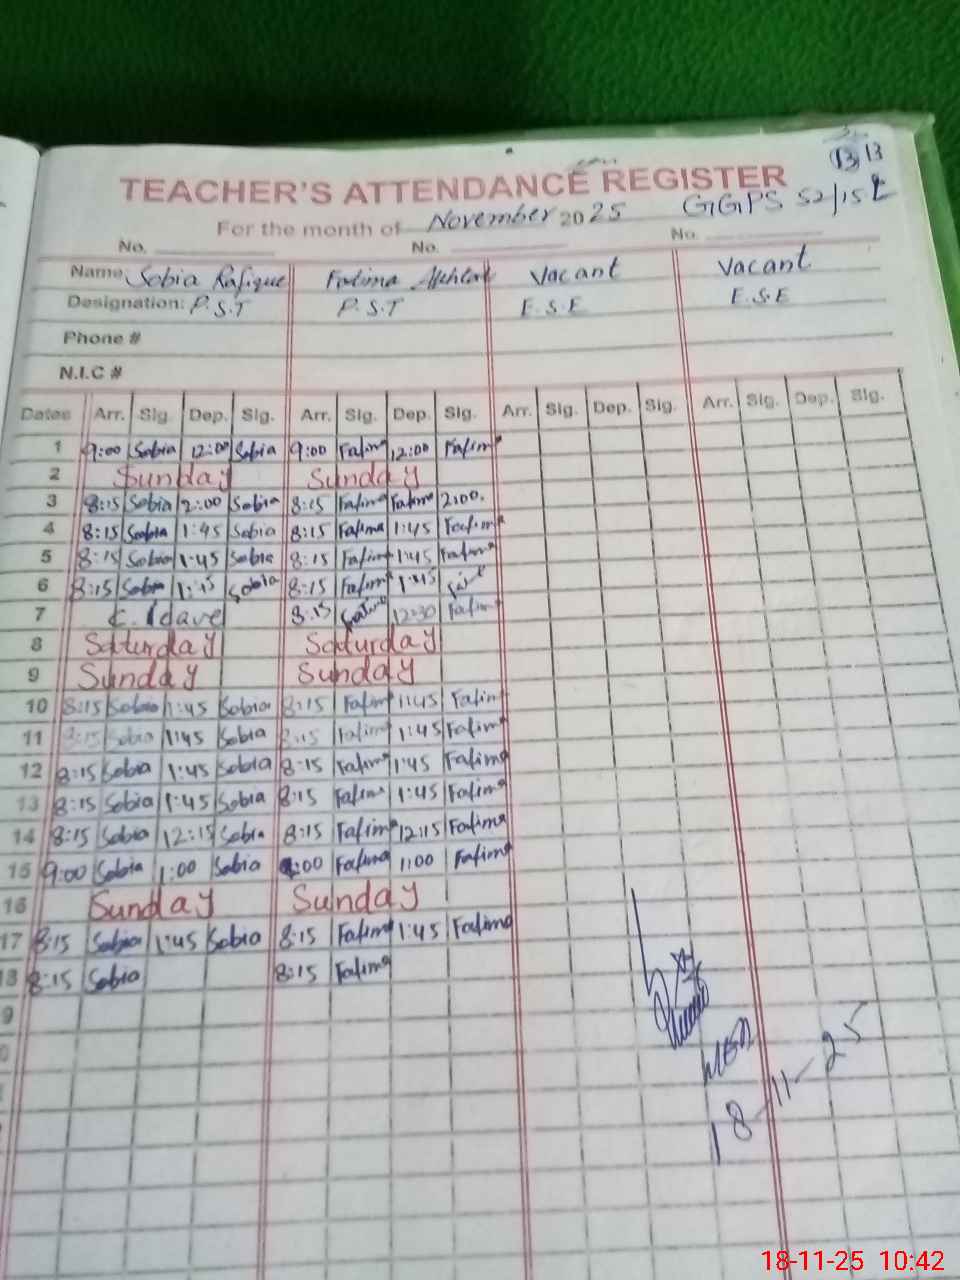 13 13
TEACHER'S ATTENDANCE REGISTER
GGPS 52/15L
For the month of November 2025
No. No. No.
Name: Sobia Rafique Fatima Akhtar Vacant Vacant
Designation: P.S.T P.S.T E.S.E E.S.E
Phone #
N.I.C #
Dates Arr. Sig. Dep. Sig. Arr. Sig. Dep. Sig. Arr. Sig. Dep. Sig. Arr. Sig. Dep. Sig.
1 9:00 Sobia 12:00 Sobia 9:00 Fatima 12:00 Fatima
2 Sunday Sunday
3 8:15 Sobia 2:00 Sobia 8:15 Fatima Fatima 2:00.
4 8:15 Sobia 1:45 Sobia 8:15 Fatima 1:45 Fatima
5 8:15 Sobia 1:45 Sobia 8:15 Fatima 1:45 Fatima
6 8:15 Sobia 1:45 Sobia 8:15 Fatima 1:45
7 C. leave 8:15 Fatima 12:30 Fatima
8 Saturday Saturday
9 Sunday Sunday
10 8:15 Sobia 1:45 Sobia 8:15 Fatima 1:45 Fatima
11 8:15 Sobia 1:45 Sobia 8:15 Fatima 1:45 Fatima
12 8:15 Sobia 1:45 Sobia 8:15 Fatima 1:45 Fatima
13 8:15 Sobia 1:45 Sobia 8:15 Fatima 1:45 Fatima
14 8:15 Sobia 12:15 Sobia 8:15 Fatima 12:15 Fatima
15 9:00 Sobia 1:00 Sobia 9:00 Fatima 1:00 Fatima
16 Sunday Sunday
17 8:15 Sobia 1:45 Sobia 8:15 Fatima 1:45 Fatima
18 8:15 Sobia 8:15 Fatima
9
18-11-25
18-11-25 10:42